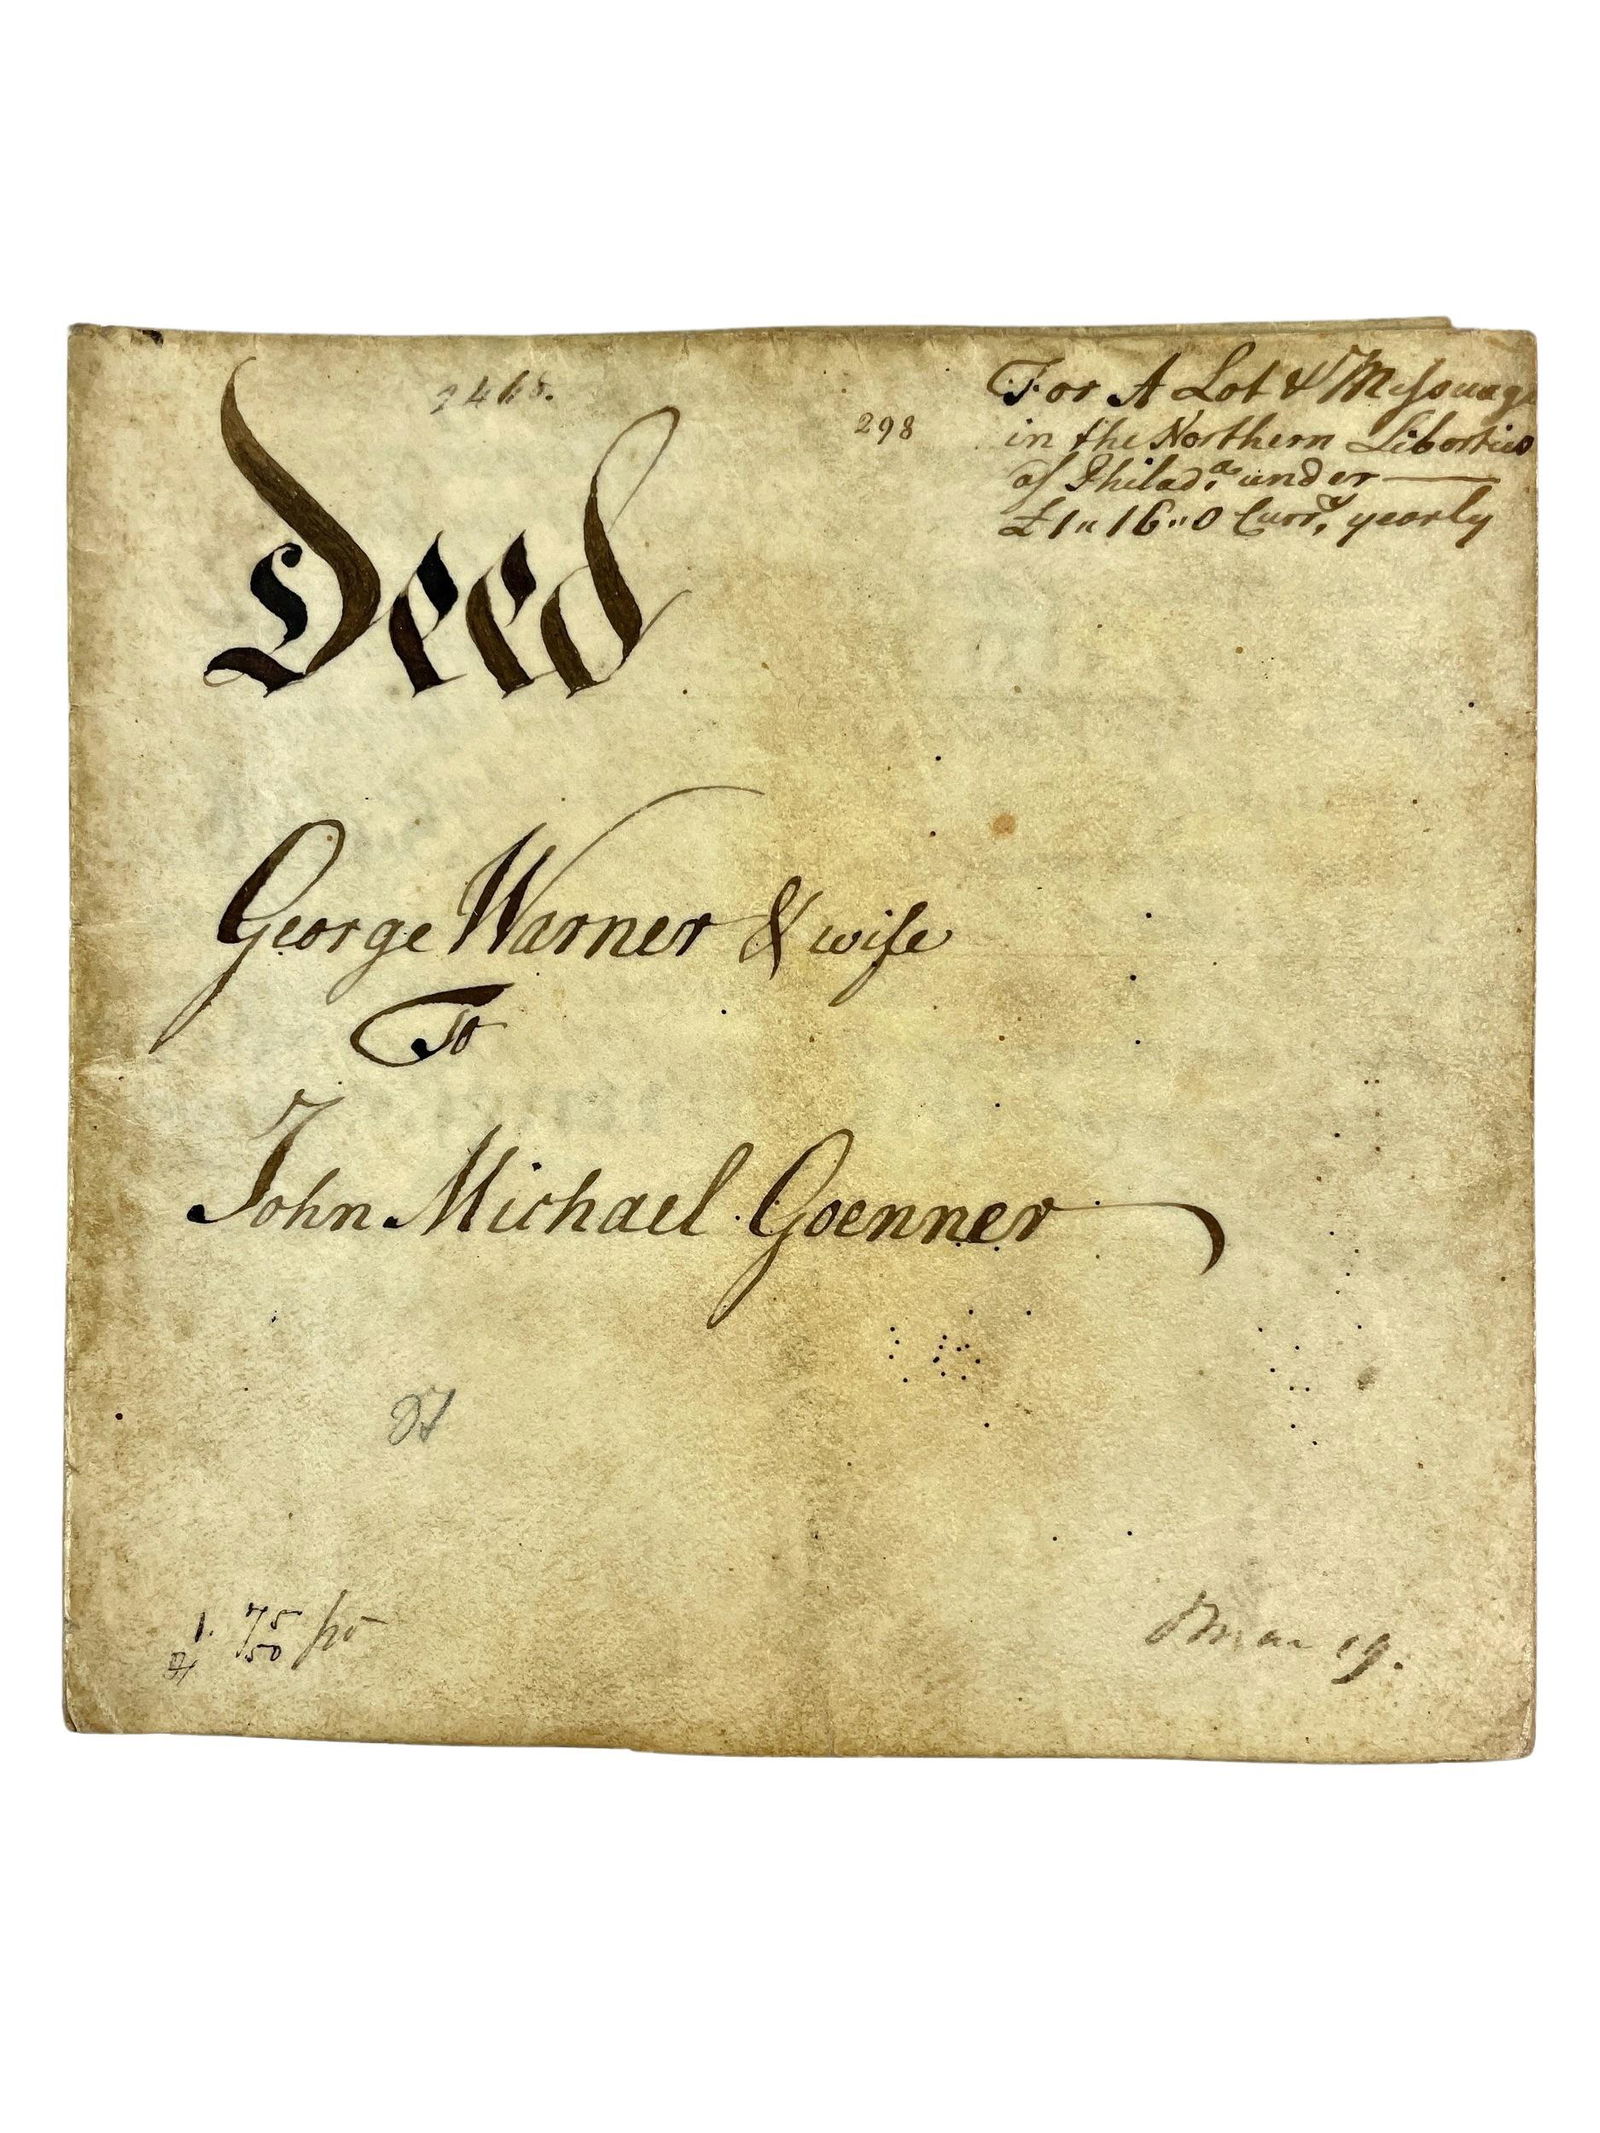 For A Lot & Messuage
in the Northern Liberties
of Philad.a under
£1"16"0 Curr.y yearly
298
Deed
George Warner & wife
To
John Michael Goenner
1. 75
50
19.